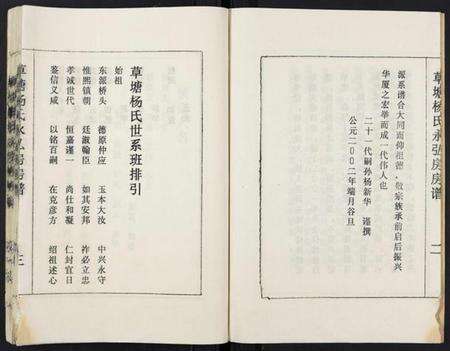 草塘杨氏永弘房房谱
二
源系谱合大同而仰祖德，敬宗族承前启后振兴
华厦之宏举而成一代伟人也
二十一代嗣孙杨新华 谨撰
公元二00二年端月谷旦
草塘杨氏世系班排引
始祖
东源桥头 德原仲应 玉本大汝 中兴永守
惟熙镇朝 廷淑翰臣 如其安邦 祚必立忠
孝诚世代 恒嘉谨一 尚仕和凝 仁封宜日
鉴信义咸 以铭百嗣 在克彦方 绍祖述心
草塘杨氏永弘房房谱
三